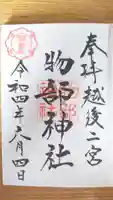 奉拝越後二宮
物部神社
令和四年六月四日